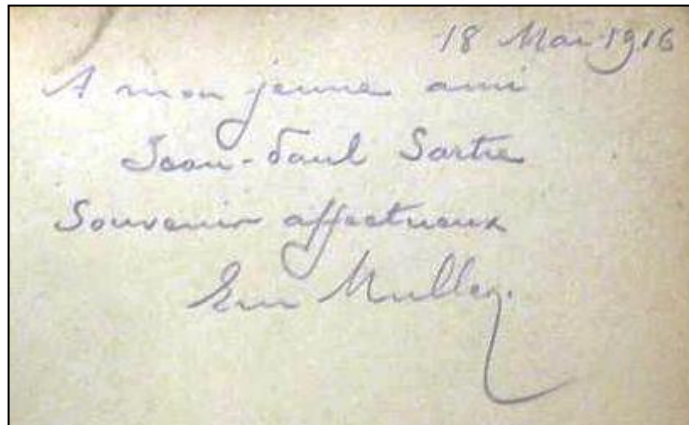 18 Mai 1916
A mon jeune ami
Jean-Paul Sartre
Souvenir affectueux
Muller